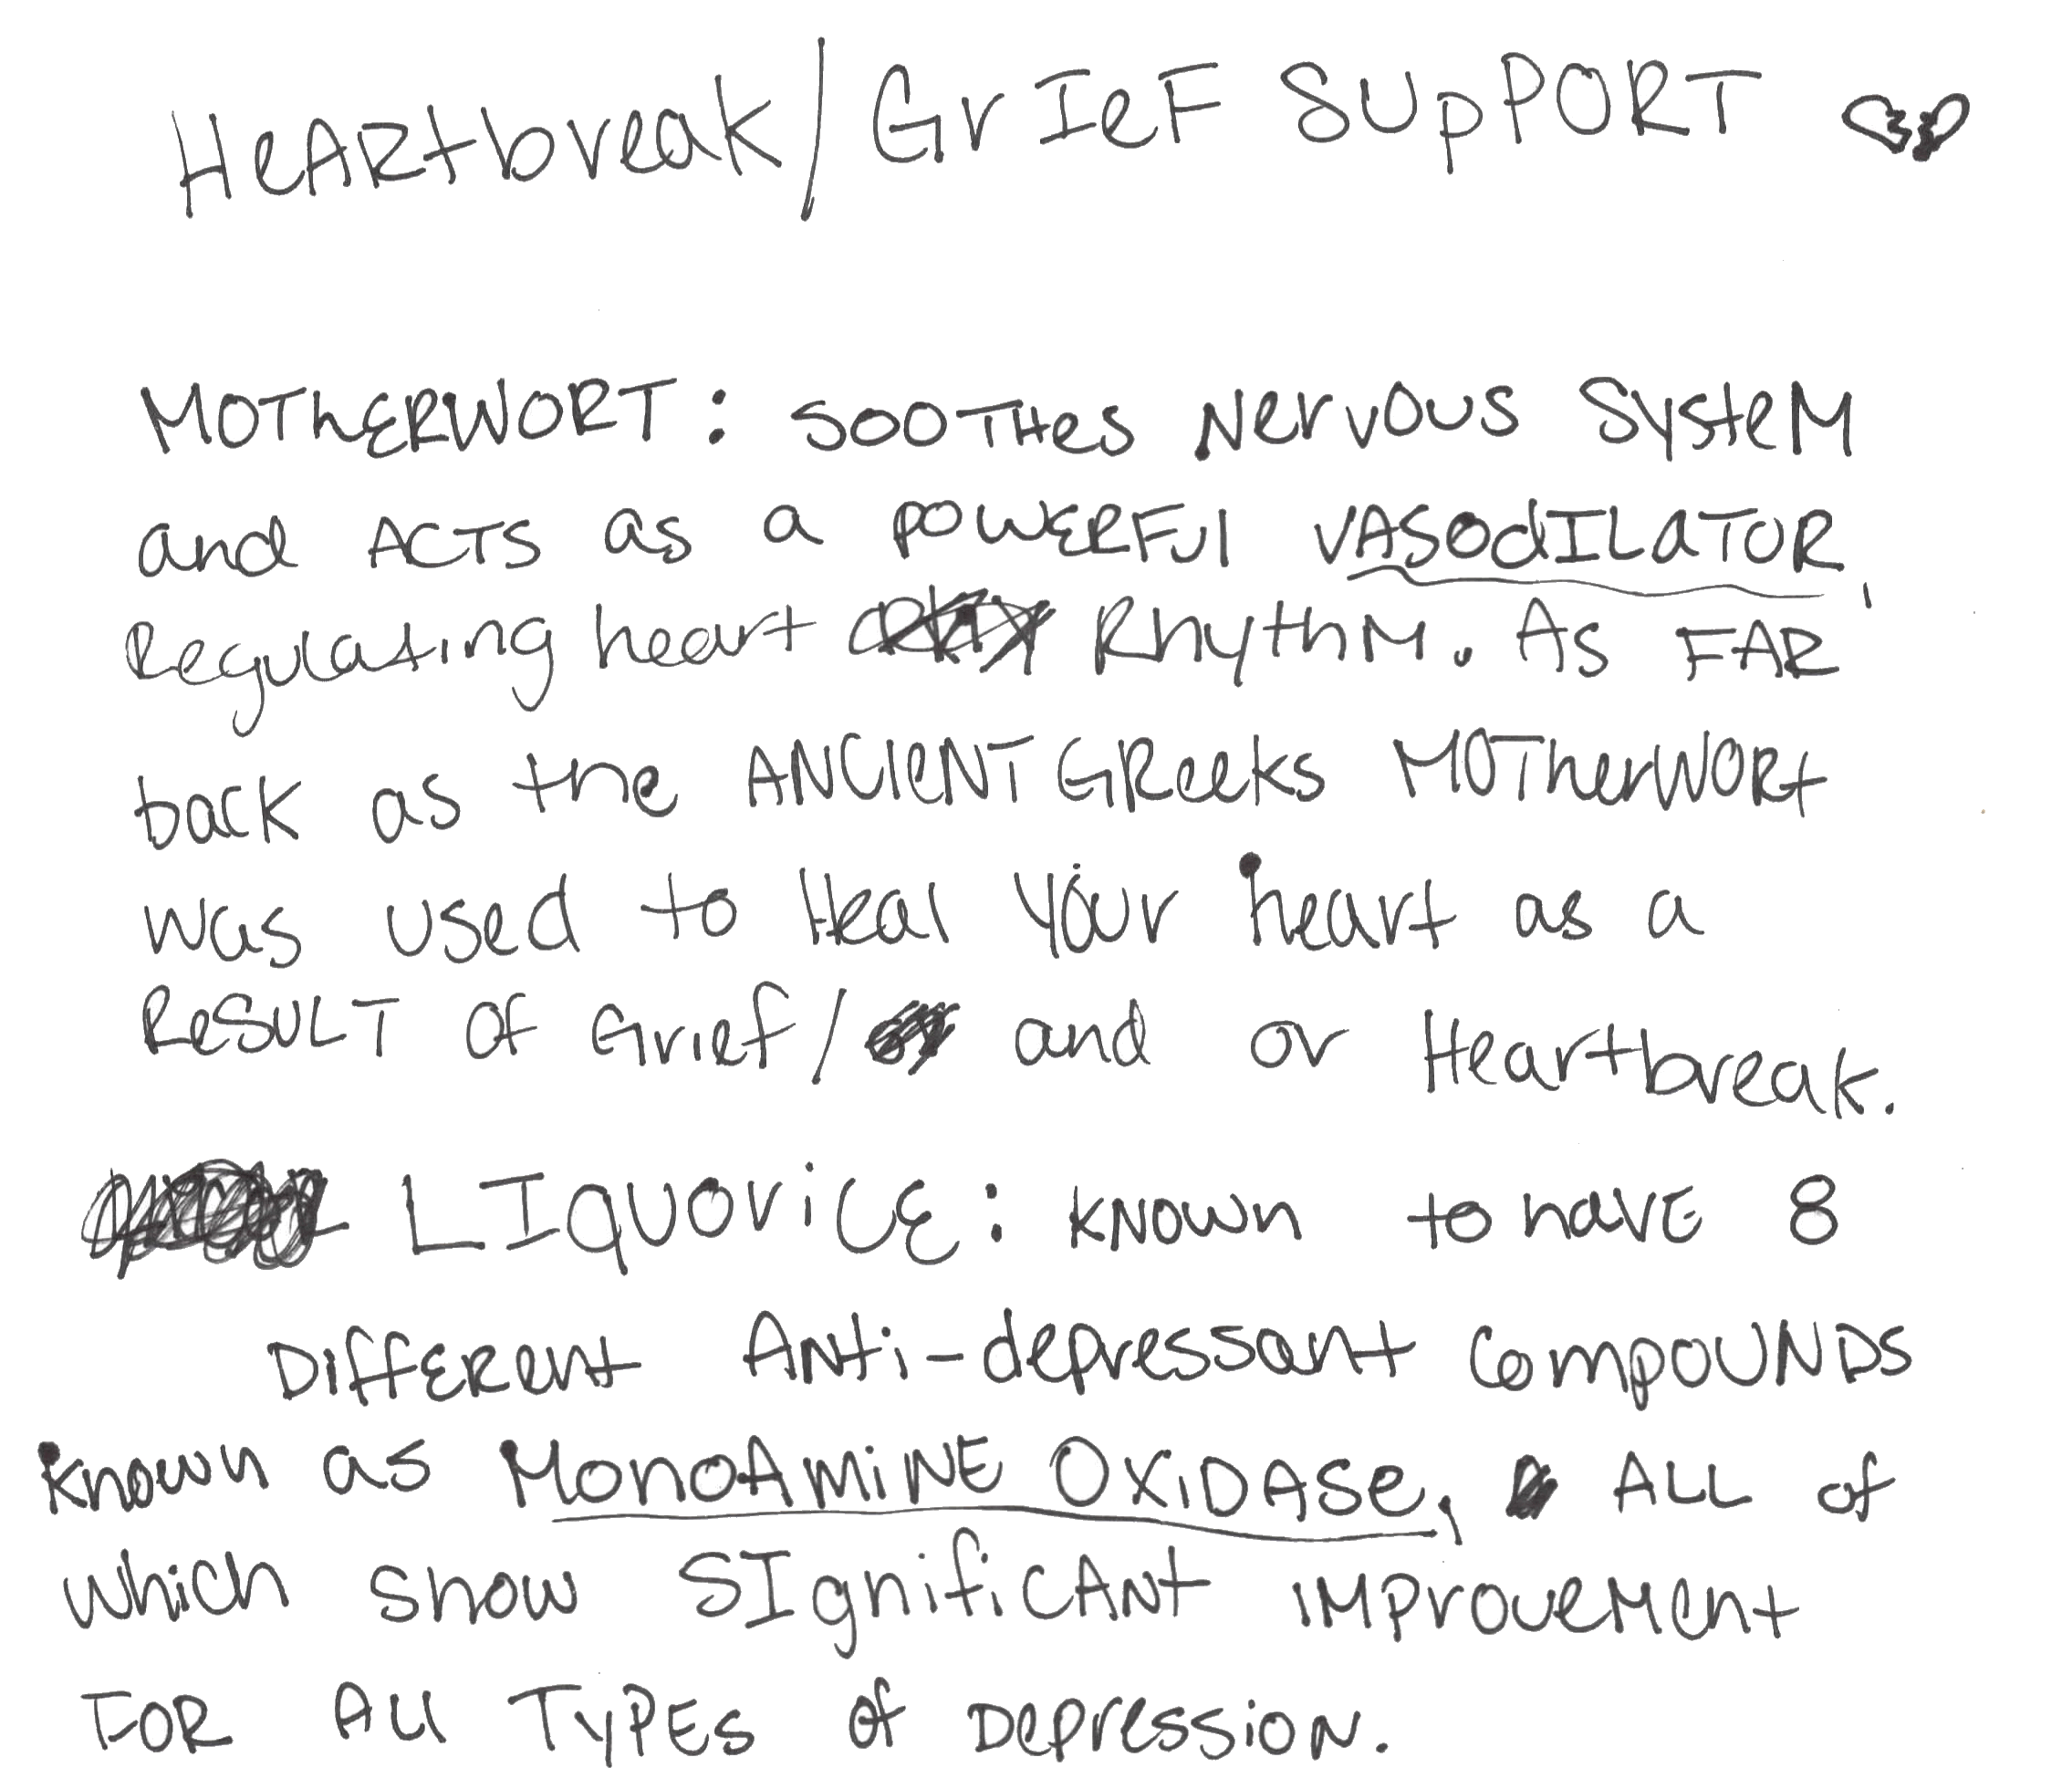 HeARtbreak/GrIeF SUpPORT
MOThERWORT: SOOTHes Nervous SysteM
and ACTS as a POWERFul VASOdILaTOR,
Regulating heart Rhythm. As FAR
back as the ANCIeNT GReeks MOTherWORt
was used to Heal your heart as a
ReSULT of Grief/ and or Heartbreak.
LIquoriCE: KNOWn to haVE 8
DiffERent ANti-depressant COmpOUNDS
Known as MonoAMiNE OXiDASe, ALL of
which show SIgnifiCANt iMproveMent
FOR All TYPES of Depression.